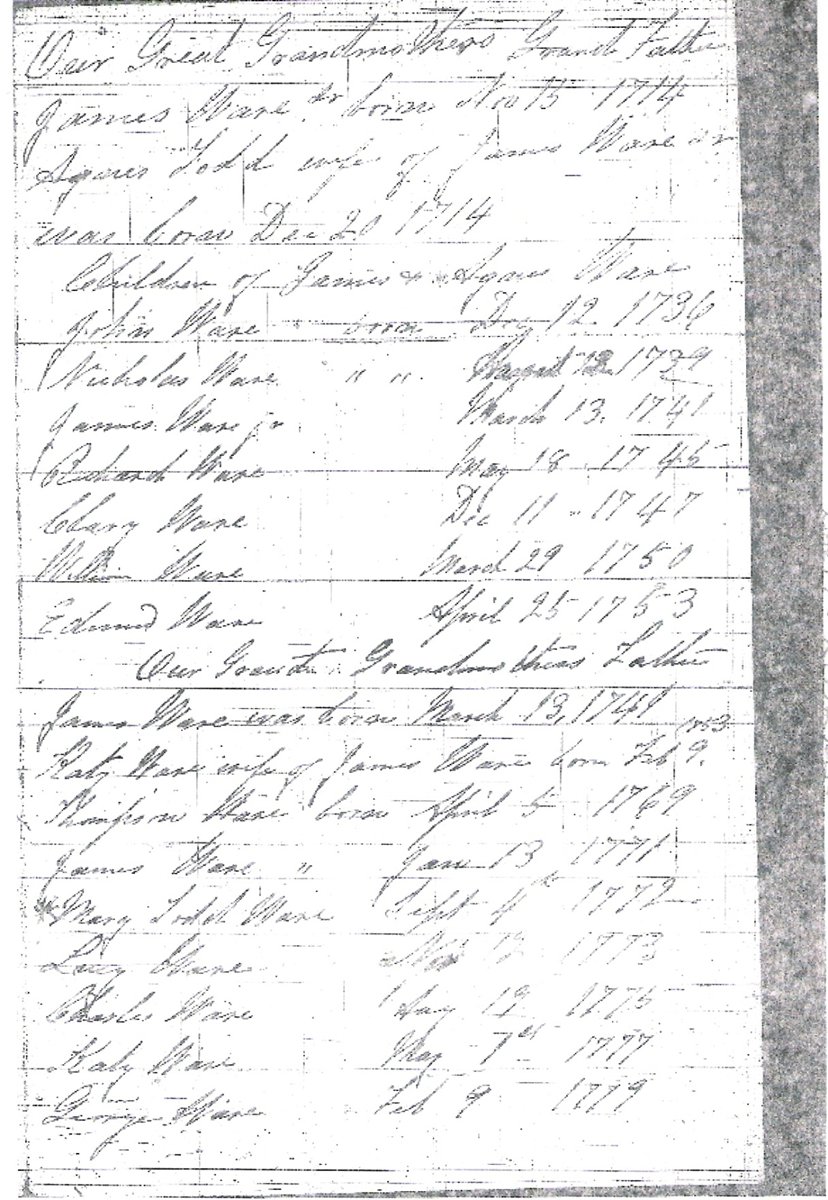 Our Great Grandmothers Grand Father
James Ware Sr born Nov 15 1714
Agnes Todd wife of James Ware Sr
was born Dec 20 1714
Children of James & Agnes Ware
John Ware " born Dec 12 1736
Nicholas Ware " " 1739
James Ware jr March 13, 1741
Richard Ware May 18 1745
Clary Ware Dec 11 1747
William Ware March 29 1750
Edmund Ware April 25 1753
Our Great Grandmothers Father
James Ware was born March 13, 1741
Katy Ware wife of James Ware born Feb 9,
Thompson Ware born April 5 1769
James Ware " Jan 13 1771
*Mary Todd Ware Sept 4th 1772
Lucy Ware 1773
Charles Ware Aug 19 1775
Katy Ware May 1777
George Ware Feb 9 1779